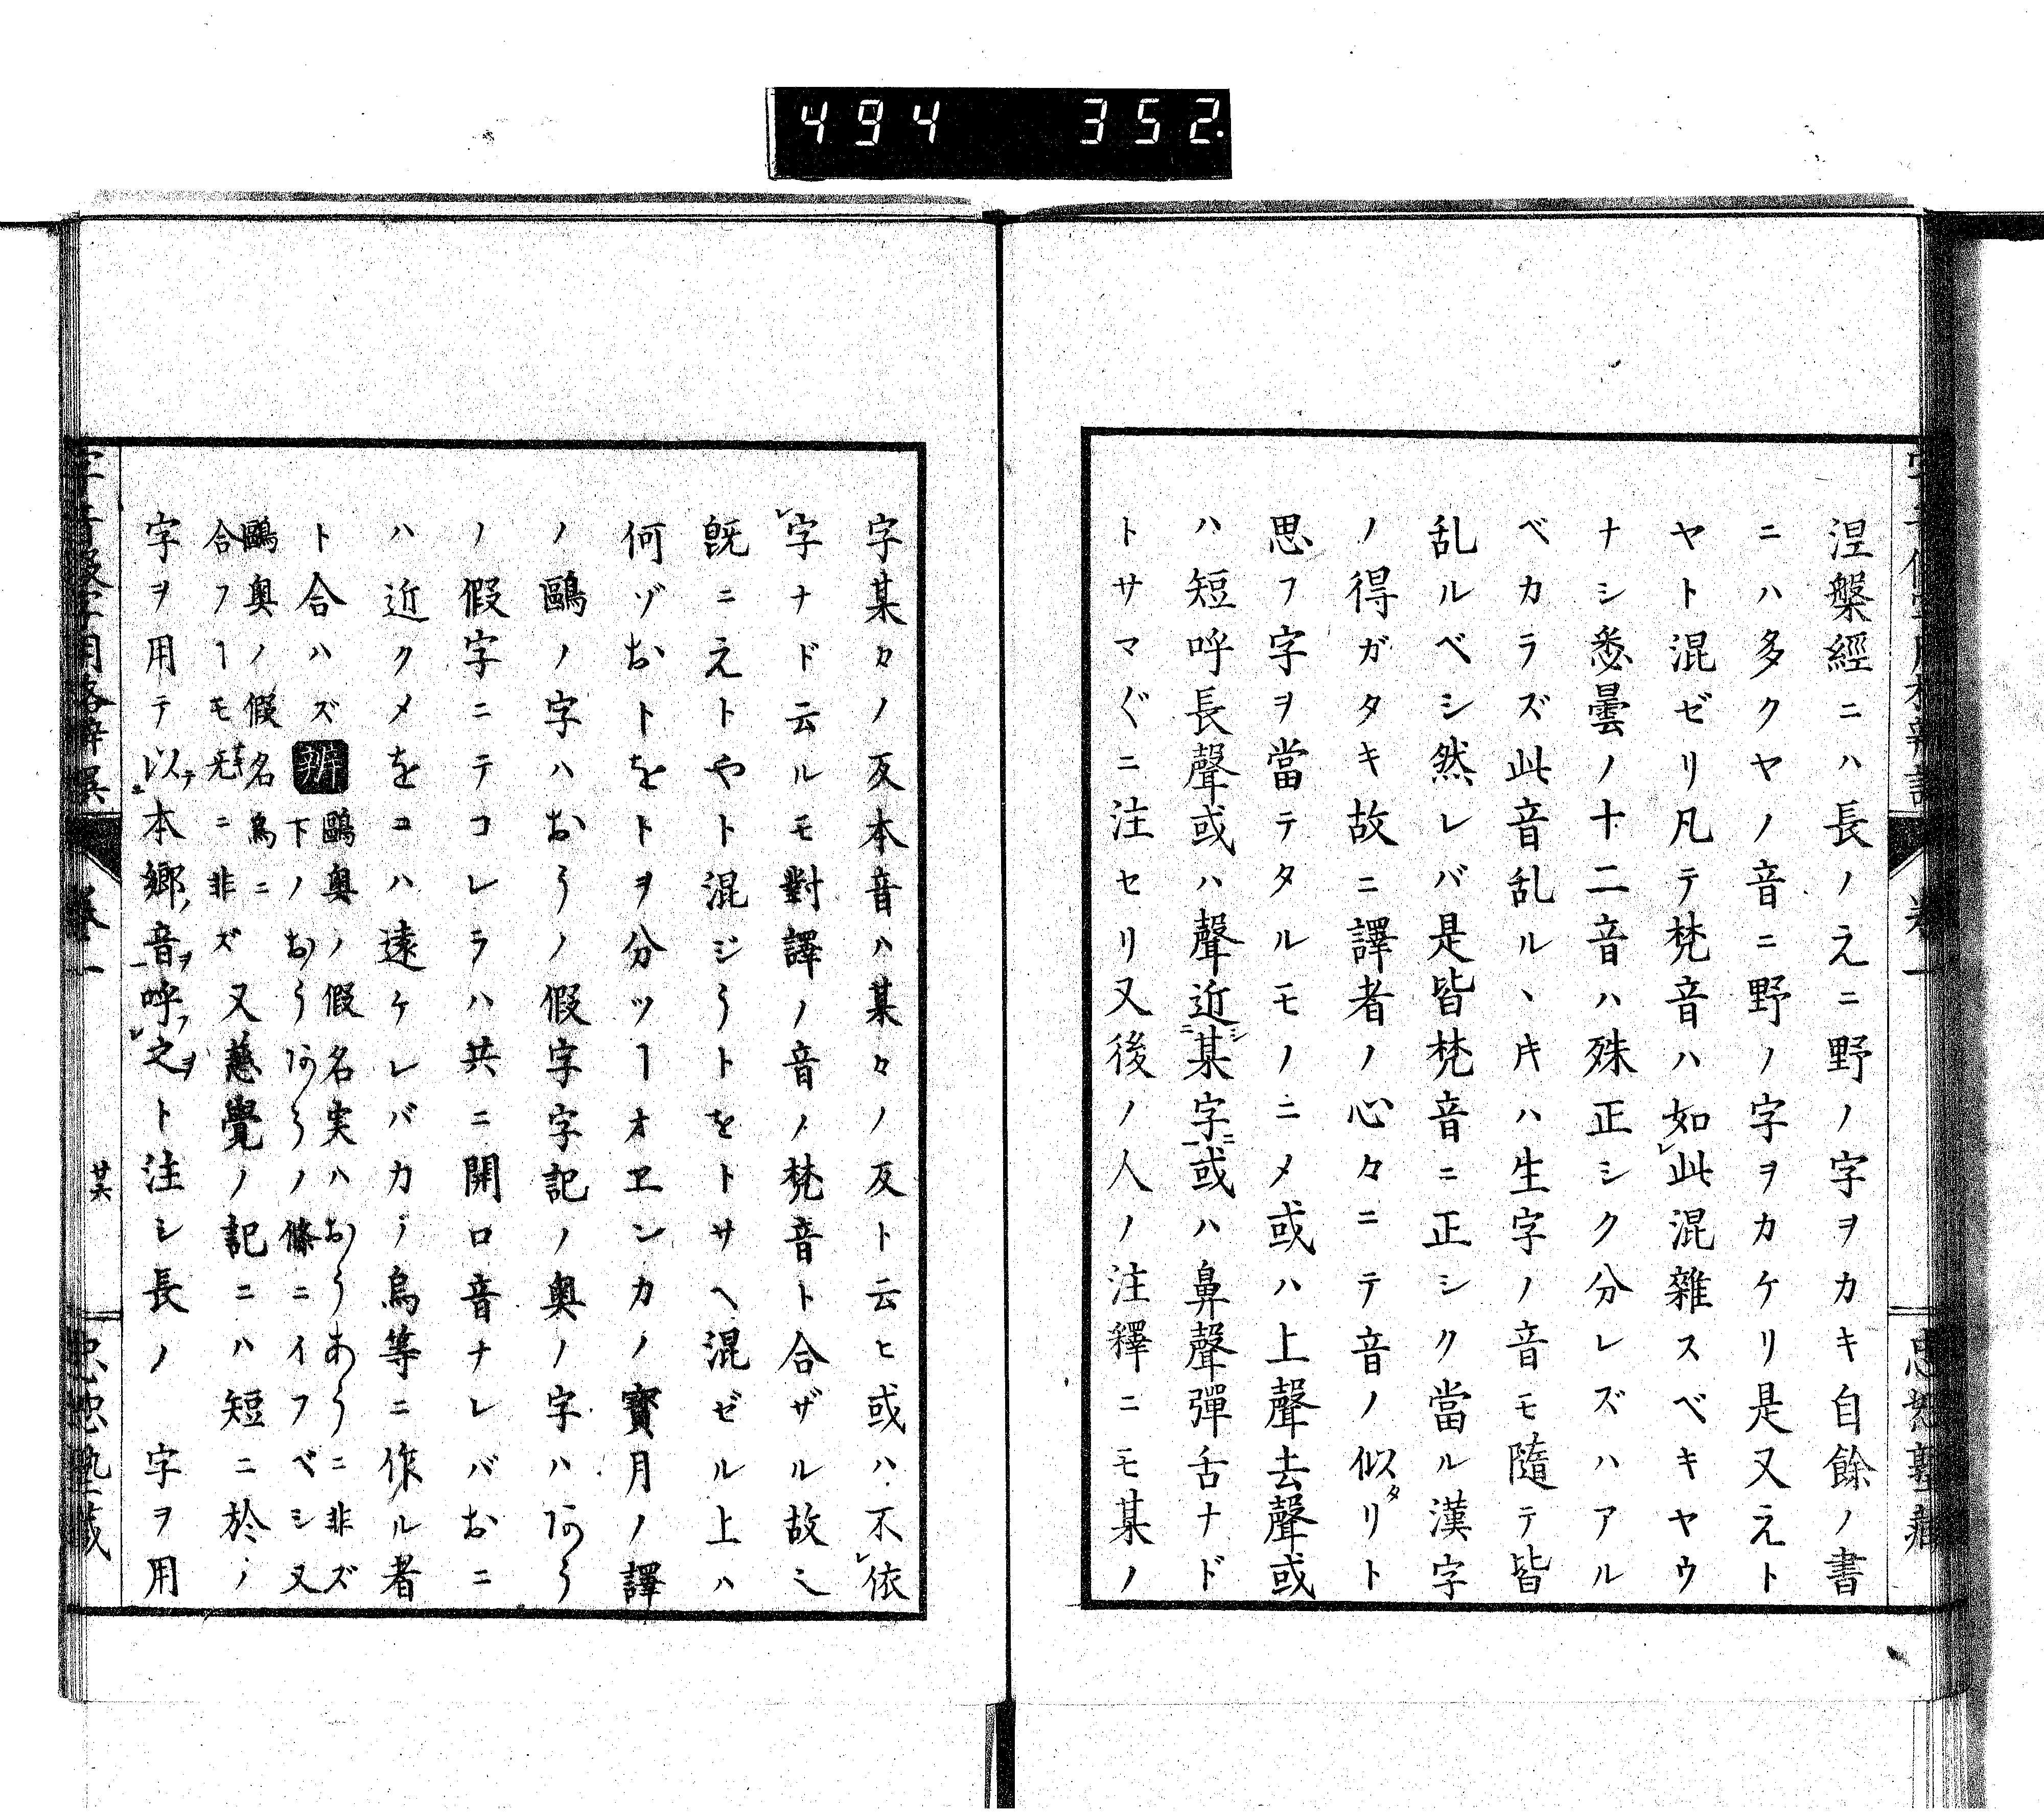 494 352.
涅槃經ニハ長ノえニ野ノ字ヲカキ自餘ノ書
ニハ多クヤノ音ニ野ノ字ヲカケリ是又えト
ヤト混ゼリ凡テ梵音ハ如レ此混雜スベキヤウ
ナシ悉曇ノ十二音ハ殊正シク分レズハアル
ベカラズ此音乱ルヽ𪜈ハ生字ノ音モ隨テ皆
乱ルベシ然レバ是皆梵音ニ正シク當ル漢字
ノ得ガタキ故ニ譯者ノ心々ニテ音ノ似スタリト
思フ字ヲ當テタルモノニメ或ハ上聲去聲或
ハ短呼長聲或ハ聲近シ二某字ニ一或ハ鼻聲彈舌ナド
トサマ〲ニ注セリ又後ノ人ノ注釋ニモ某ノ
字某カノ反本音ハ某々ノ反ト云ヒ或ハ不レ依
レ字ナド云ルモ對譯ノ音ノ梵音ト合ザル故ミ
旣ニえトやト混ジうトをトサヘ混ゼル上ハ
何ゾおトをトヲ分ツヿオヱンカノ寳月ノ譯
ノ鷗ノ字ハおうノ假字字記ノ奧ノ字ハあう
ノ假字ニテコレラハ共ニ開口音ナレバおニ
ハ近クメをコハ遠ケレバカノ烏等ニ作ル者
ト合ハズ辨鷗奧ノ假名実ハおうあうニ非ズ
下ノおうあうノ條ニイフベシ又
鷗奧ノ假名烏ニ
合フヿモ无キニ非ズ又慈覺ノ記ニハ短ニ於ノ
字ヲ用テ以テ二本鄕ノ音ヲ一呼フレ之ヲト注シ長ノ 字ヲ用
卷一
卷一
其